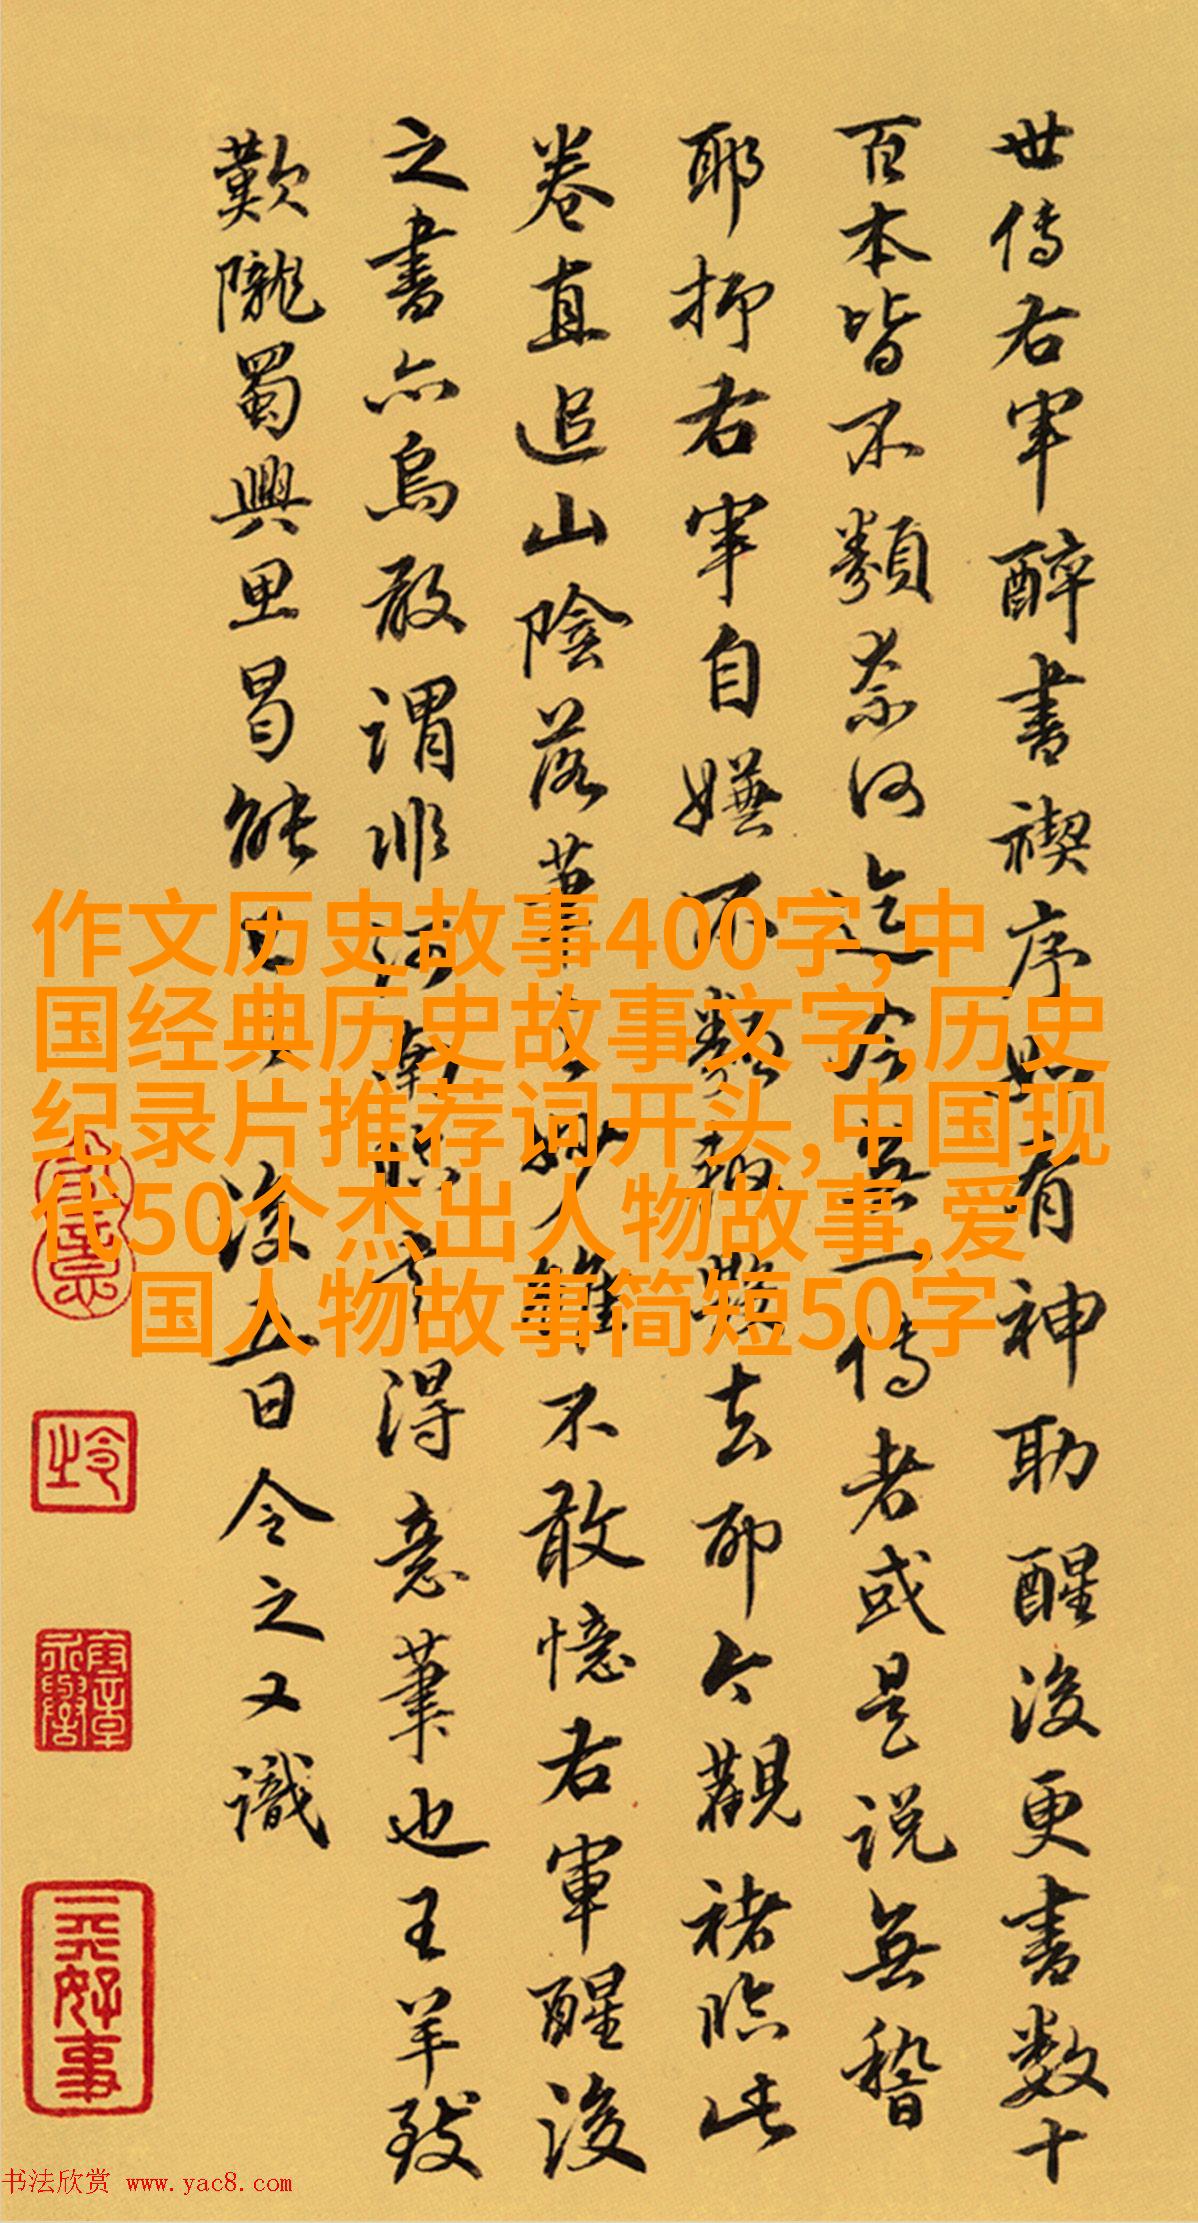 世傳右軍醉書禊序如有神助醒後更書數十
百本皆不類奈何迄今無一傳者或是说無稽
耶抑右軍自嫌不類去耶今觀褚臨此
卷直追山陰落筆之妙雖不敢憶右軍醒後
之書亦烏敢謂非河南得意筆也王羊致
歎隴蜀興思曷能已已後五日令之又識
作文历史故事400字,中
国经典历史故事文字,历史
纪录片推荐词开头,中国现
代50个杰出人物故事,爱
国人物故事简短50字
书法欣赏 www.yac8.com